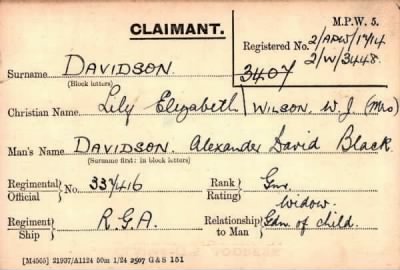 CLAIMANT.
M.P.W. 5.
Registered No. 2/APW/17/14
2/W/3448.
3407
Surname DAVIDSON.
(Block letters)
Christian Name Lily Elizabeth WILSON. W.J. (Mrs)
Man's Name DAVIDSON. Alexander David Black.
(Surname first: in block letters)
Regimental Official } No. 337416 Rank Rating } Gnr.
Widow.
Regiment Ship } R.G.A. Relationship to Man } Gdn. of child.
[M4565] 21937/A1124 50m 1/24 2507 G & S 151